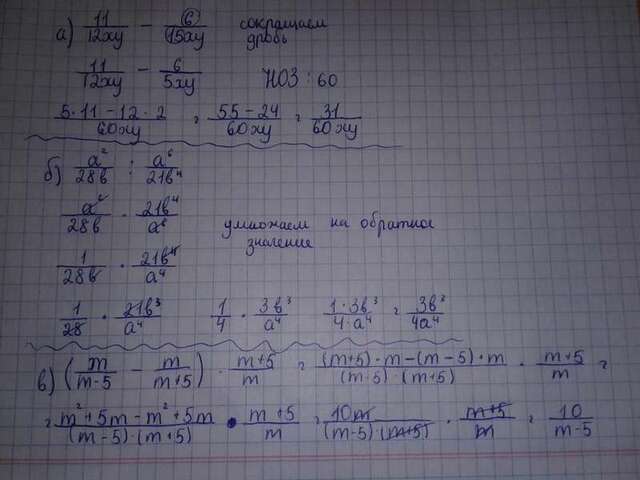 а) 11/12xy − 6/15xy сократим дробь
11/12xy − 6/5xy НОЗ : 60
5·11−12·2/60xy = 55−24/60xy = 31/60xy
б) a²/28b : a⁶/21b⁴
a²/28b · 21b⁴/a⁶ умножаем на обратное значение
1/28b · 21b⁴/a⁴
1/28 · 21b³/a⁴ 1/4 · 3b³/a⁴ 1·3b³/4a⁴ = 3b³/4a⁴
в) (m/m−5 − m/m+5) · m+5/m = (m+5)·m−(m−5)·m/(m−5)·(m+5) · m+5/m =
= m²+5m−m²+5m/(m−5)(m+5) · m+5/m = 10m/(m−5)(m+5) · m+5/m = 10/m−5